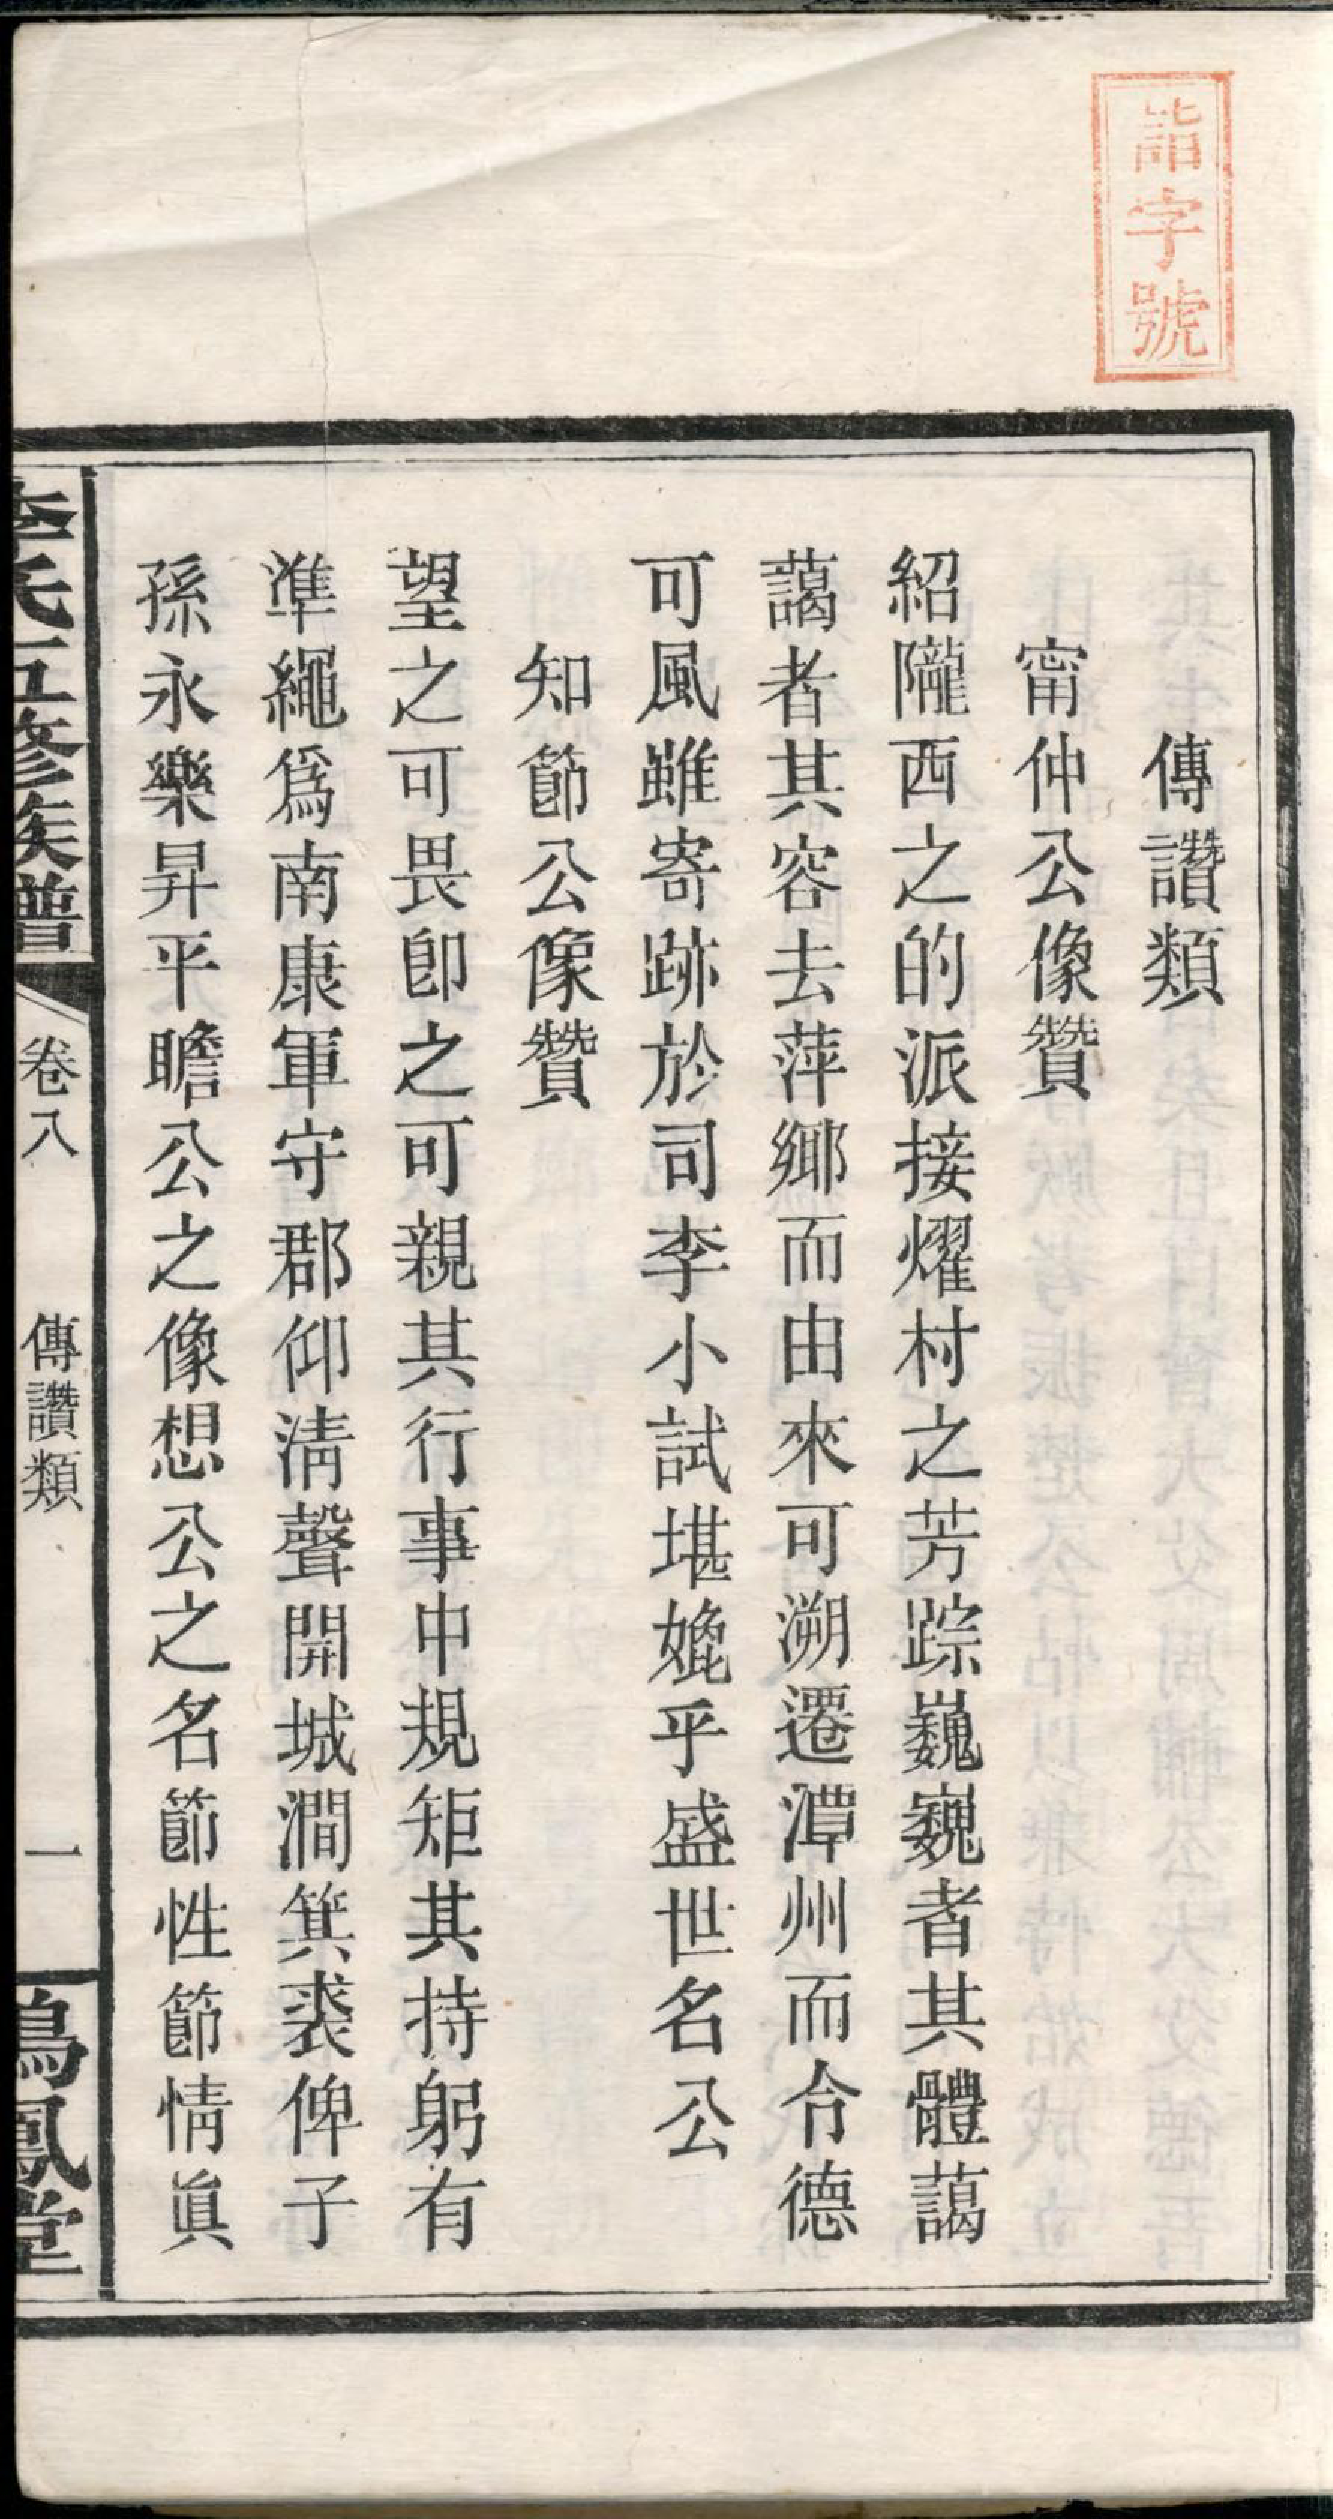 詣字號
傳讚類
甯仲公像贊
紹隴西之的派接燿村之芳踪巍巍者其體藹
藹者其容去萍鄉而由來可溯遷潭州而令德
可風雖寄跡於司李小試堪媲乎盛世名公
知節公像贊
望之可畏卽之可親其行事中規矩其持躬有
準繩爲南康軍守郡仰淸聲開城澗箕裘俾子
孫永樂昇平瞻公之像想公之名節性節情眞
李氏五修族譜
卷八
傳讚類
一
鳴鳳堂